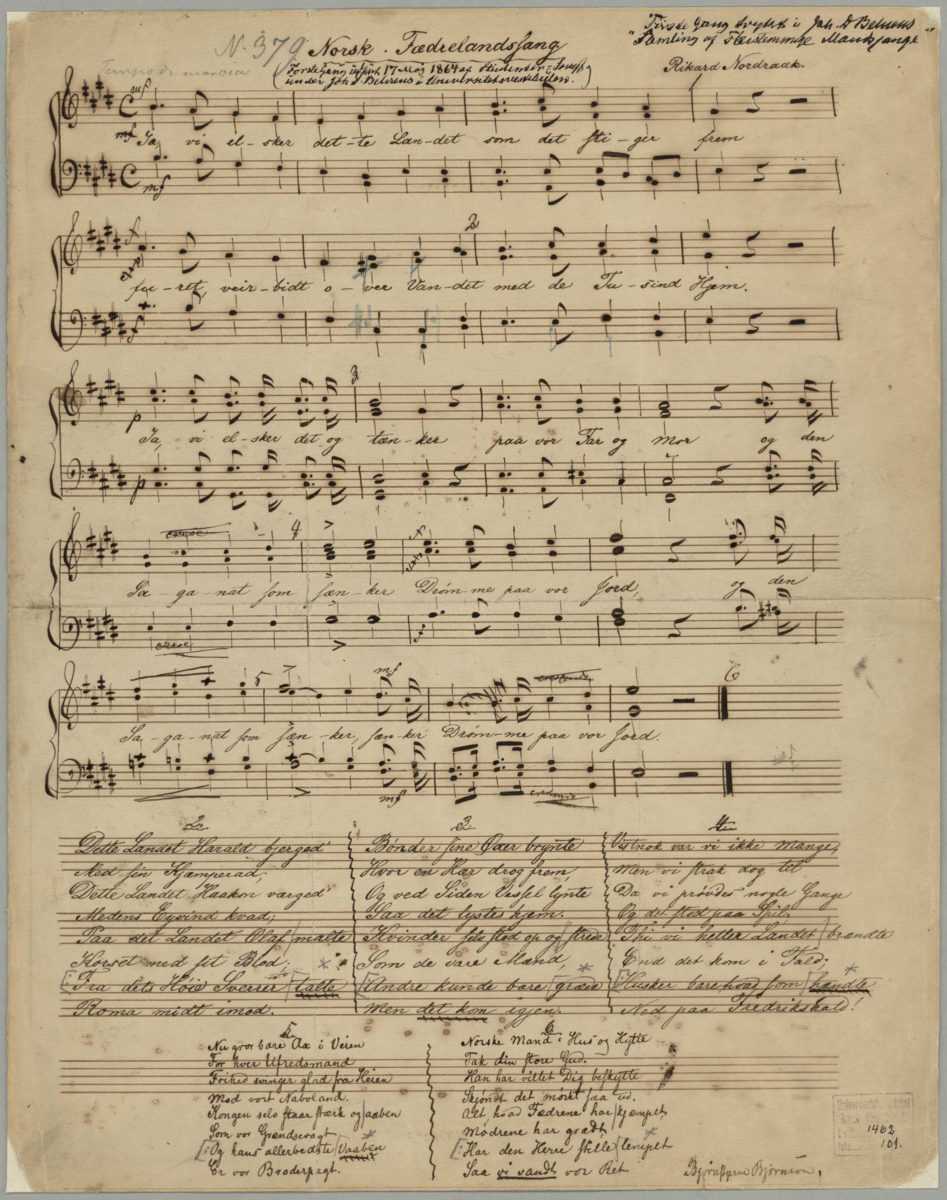 Første Gang trykt i Joh. D. Behrens
N. 379 Norsk Fædrelandssang "Samling af Flerstemmige Mandssange"
Tempo di marcia (Førstegang 17 Maj 1864 af Studenter-
under Joh. D. Behrens i Universitetet Rikard Nordraak.
mf
mf Ja, vi el-sker det-te Lan-det som det sti-ger frem
mf
2
f
fu-ret, veir-bidt o-ver Van-det med de Tu-sind Hjem.
f
3
p Ja, vi el-sker det og tæn-ker paa vor Far og Mor og den
p
cresc 4
Sa-ga-nat som sæn-ker Drøm-me paa vor Jord, og den
cresc
5 mf 6
Sa-ga-nat som sæn-ker, sæn-ker Drøm-me paa vor Jord.
mf
2
Dette Landet Harald bjerged
Med sin Kjæmperad;
Dette Landet Haakon værged
Medens Eyvind kvad;
Paa det Landet Olaf malte
Korset med sit Blod;
Fra dets Høie Sverrer talte
Roma midt imod.
3
Bønder sine Øxer brynte
Hvor en Hær drog frem,
Og ved Siden Tissel lynte
Saa det lystes hjem.
Kvinder selv stod op og strede
Som de vare Mænd,
Andre kunde bare græde
Men det kom igjen.
4
Vistnok var vi ikke mange,
Men vi strak dog til
Da vi prøvdes nogle Gange
Og det stod paa Spil;
Thi vi heller Landet brændte
End det kom i Fald;
Husker bare hvad som hændte
Ned paa Fredrikshald!
5
Nu gror bare Ax i Veien
For hver Ufredsmand
Frihed svinger glad fra Heien
Mod vort Naboland.
Kongen selv staar stærk og aaben
Som vor Grændsevagt
Og hans allerbedste Vaaben
Er vor Broderpagt.
6
Norske Mand i Hus og Hytte
Tak din store Gud.
Han har villet Dig beskytte
Skjøndt det mørkt saa ud.
Alt hva Fædrene har kjæmpet,
Mødrene har grædt,
Har den Herre stille lempet
Saa vi vandt vor Ret
Bjørnstjerne Bjørnson.
1402
101.